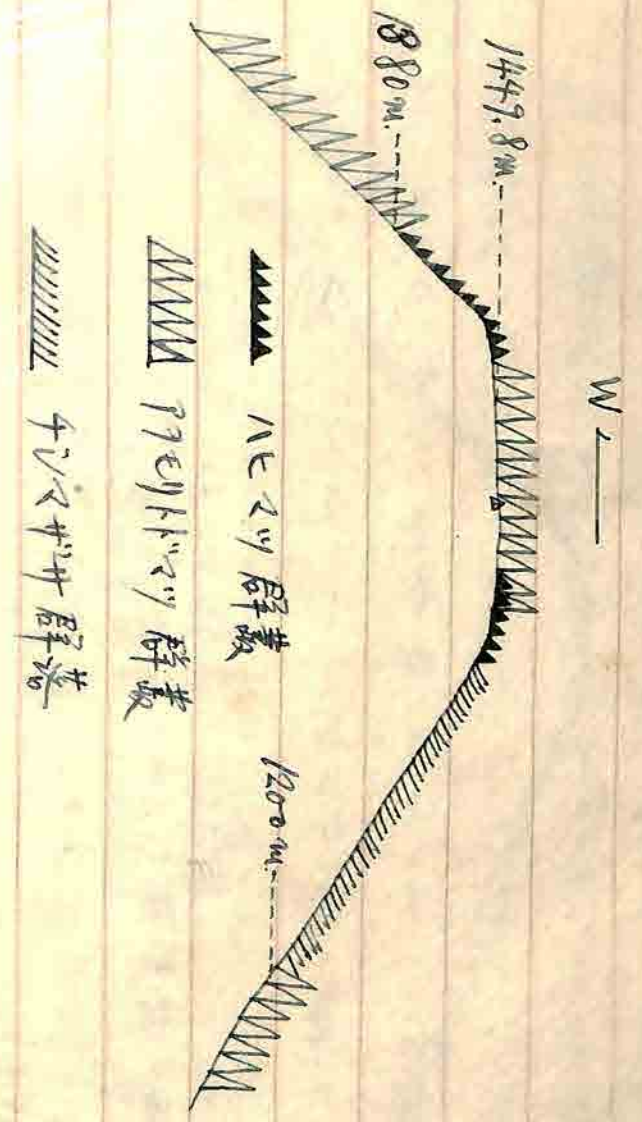 W
1449.8m.
1380m.
1200m.
ハヒマツ群叢
アヲモリトドマツ群叢
チシマザサ群落